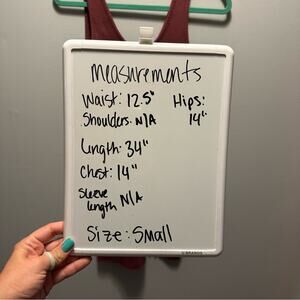 measurements
Waist: 12.5" Hips:
Shoulders: N/A 14"
Length: 34"
Chest: 14"
Sleeve
length N/A
Size: Small